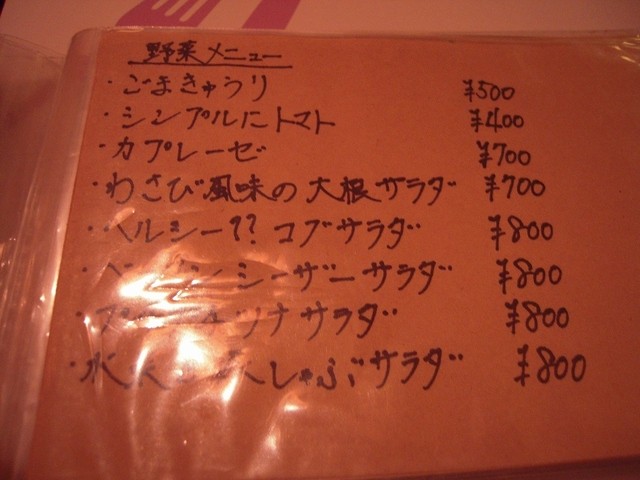 野菜メニュー
・ごまきゅうり ¥500
・シンプルにトマト ¥400
・カプレーゼ ¥700
・わさび風味の大根サラダ ¥700
・ヘルシー?? コブサラダ ¥800
シーザーサラダ ¥800
ツナサラダ ¥800
・水 しゃぶサラダ ¥800